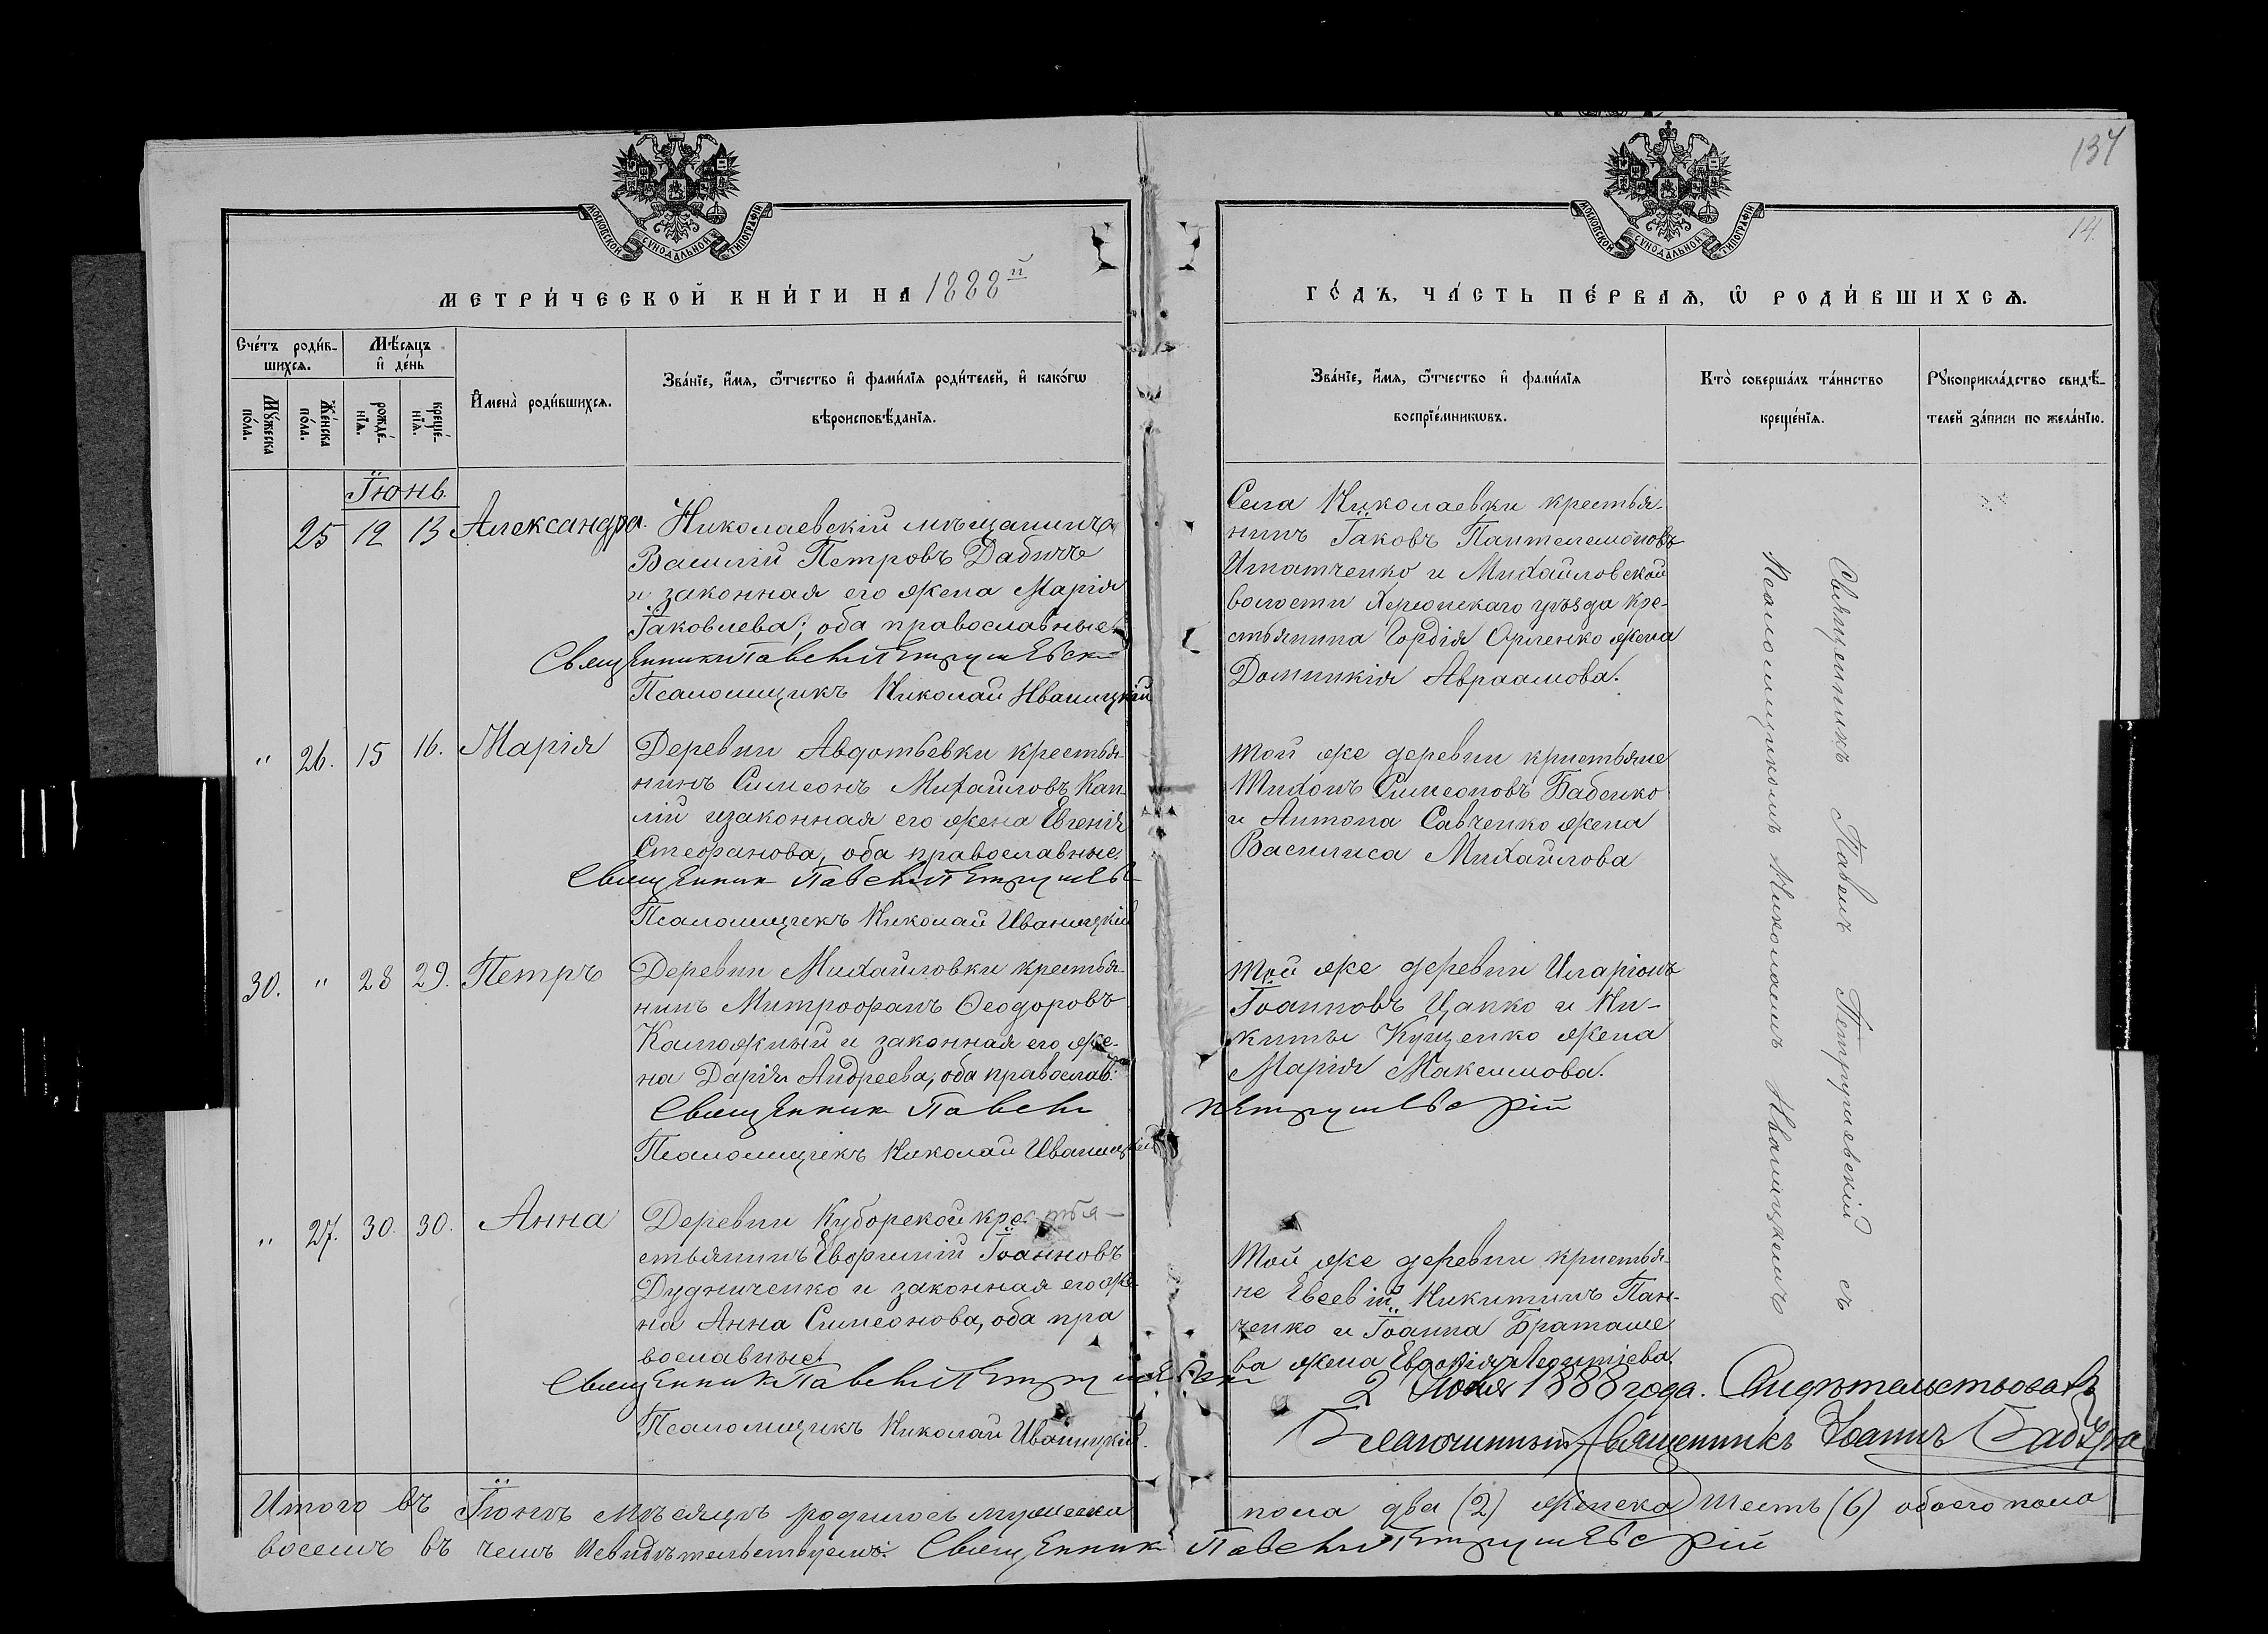 134
14.
МОСКОВСКОЙ СѴНОДАЛЬНОЙ ТИПОГРАФІИ
МОСКОВСКОЙ СѴНОДАЛЬНОЙ ТИПОГРАФІИ
МЕТРИ́ЧЕСКОЙ КНИ́ГИ НА 1888й
ГО́ДЪ, ЧА́СТЬ ПЕ́РВАѦ, Ѡ РОДИ́ВШИХСѦ.
Сче́тъ роди́в-
шихсѧ.
Мѣ́сяцъ
и҆ де́нь
Мꙋ́жеска
по́ла.
Же́нска
по́ла.
рожде́-
нїѧ.
креще́-
нїѧ.
И҆мена̀ роди́вшихсѧ.
Зва́нїе, и҆́мѧ, ѻ҆́тчество и҆ фами́лїѧ роди́телей, и҆ како́гѡ
вѣроисповѣ́данїѧ.
Зва́нїе, и҆́мѧ, ѻ҆́тчество и҆ фами́лїѧ
воспрїе́мникѡвъ.
Кто̀ соверша́лъ та́инство
креще́нїѧ.
Рꙋкоприкла́дство свидѣ́-
телей за́писи по жела́нїю.
Іюнь.
25 12 13 Александра. Николаевскій мѣщанинъ
Василій Петровъ Дабичъ
и законная его жена Марія
Іаковлева; оба православные
Священникъ Павелъ Петрушевскі
Псаломщикъ Николай Иваницкій
Села Николаевки крестья-
нинъ Іаковъ Пантелемоновъ
Игнатченко и Михайловской
волости Херсонскаго уѣзда кре-
стьянина Гордія Орленко жена
Домникія Авраамова.
" 26. 15 16. Марія Деревни Авдотьевки крестья-
нинъ Симеонъ Михайловъ Кап-
лій изаконная его жена Евгенія
Стефанова, оба православные.
Священник Павелъ Петрушев
Псаломщикъ Николай Иваницкій
той же деревни кристьяне
Тихонъ Симеоновъ Бабенко
и Антона Савченко жена
Василиса Михайлова
30. " 28 29. Петръ Деревни Михайловки крестья-
нинъ Митрофанъ Ѳеодоровъ
Калюжный и законная его же-
на Дарія Андреева, оба православ:
Священник Павелъ Петрушевскій
Псаломщикъ Николай Иваницкій
той же деревни Иларіонъ
Іоанновъ Цапко и Ни-
киты Куценко жена
Марія Максимова.
" 27. 30. 30. Анна Деревни Куборской крестья-
стьянинъ Евфимій Іоанновъ
Дудниченко и законная его же-
на Анна Симеонова, оба пра
вославные
Священник Павелъ Петрушевски
Псаломщикъ Николай Иваницкій.
Той же деревни кристья-
не Евсевій Никитинъ Пан-
ченко и Іоанна Браташе
ва жена Евдокія Леонтіева.
Священникъ Павелъ Петрушевскій съ
Псаломщикомъ Николаемъ Иваницкимъ
2 Іюля 1888 года. Свидѣтельствовалъ
Благочинный Священникъ Іоаннъ Бабура
Итого въ Іюнѣ мѣсяцѣ родилось мужеска
пола два (2) женска шесть (6) обоего пола
восемь въ чемъ и свидѣтельствуемъ: Священник Павелъ Петрушевскій